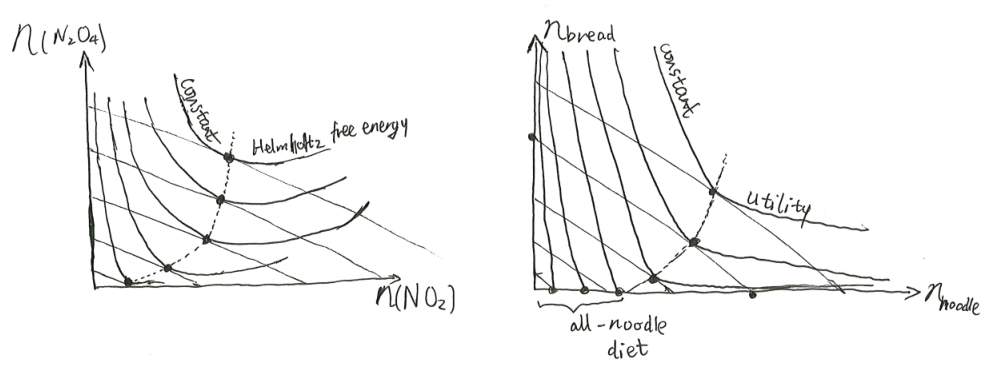 n(N₂O₄)
constant
Helmholtz free energy
n(NO₂)
nbread
constant
utility
nnoodle
all-noodle
diet